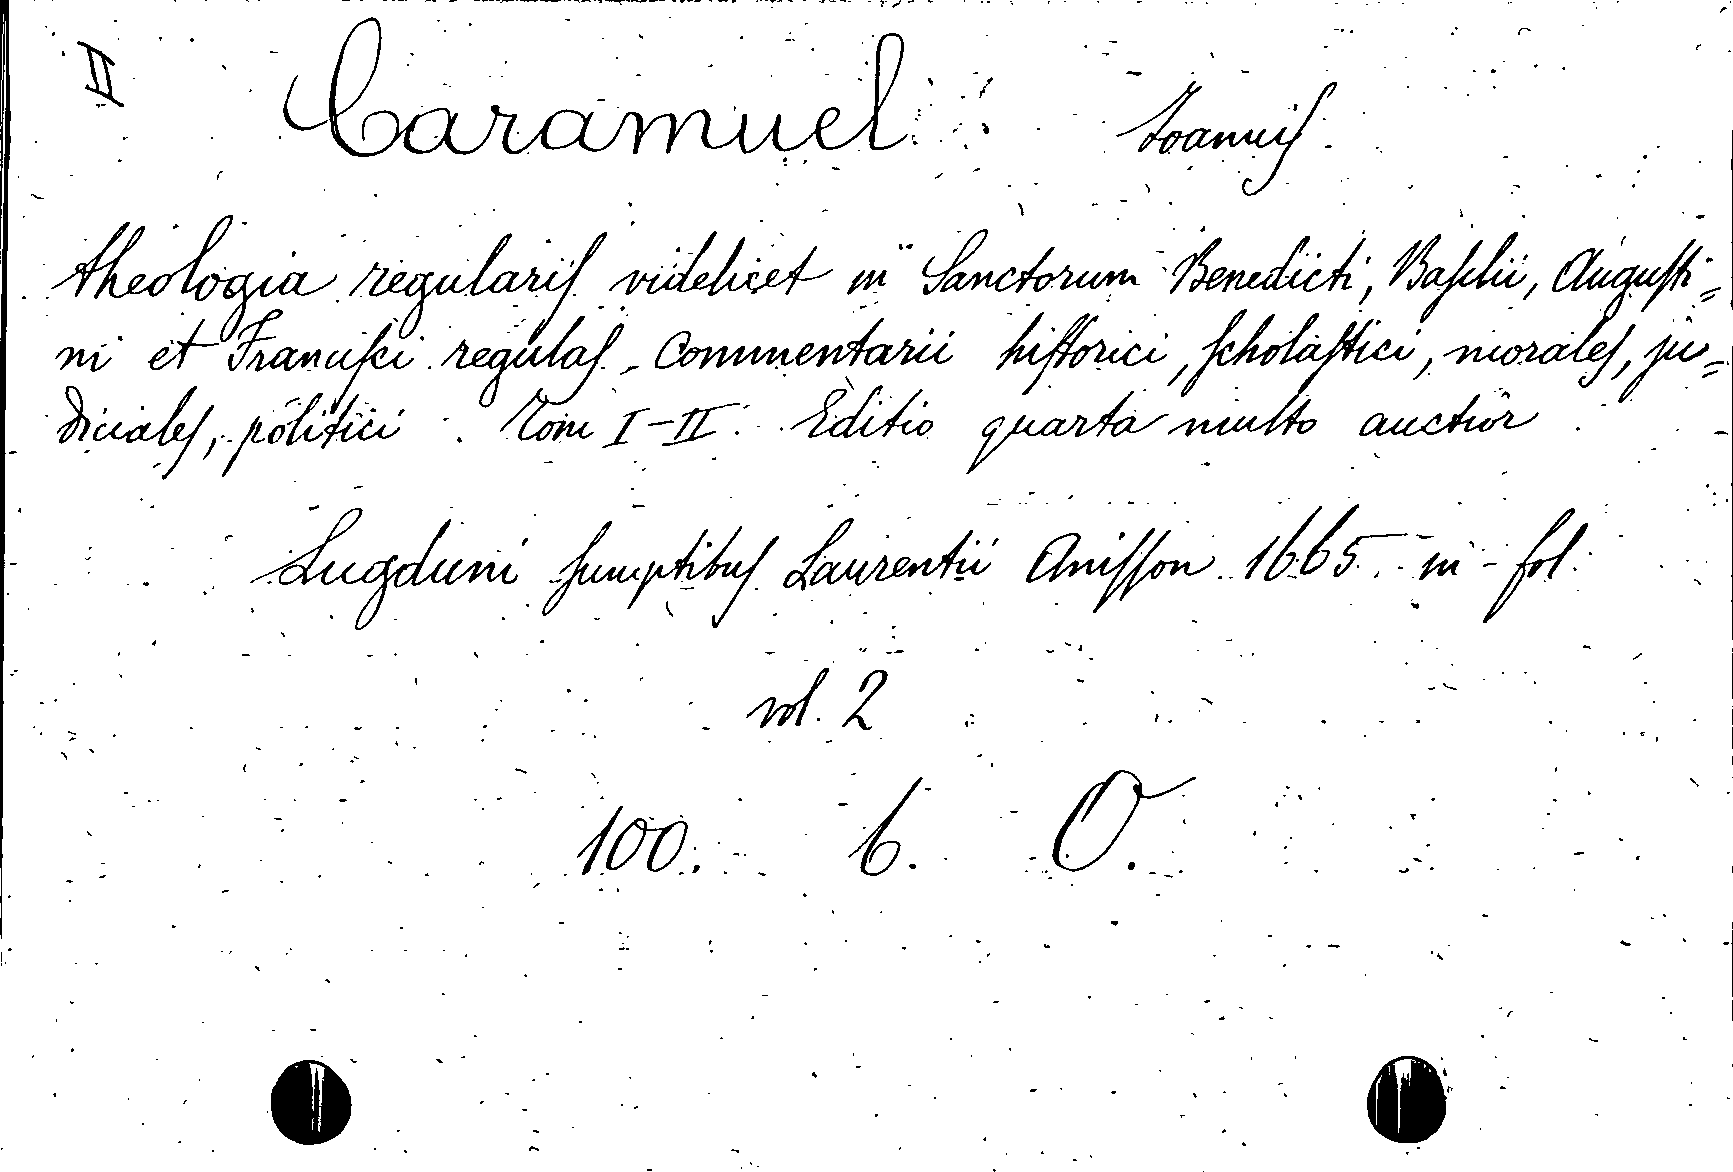 II Caramuel Joannis
theologia regularis videlicet in Sanctorum Benedicti, Basilii, Augusti=
ni et Francisci regulas, Commentarii historici, scholastici, morales, ju=
diciales, politici. Tom I-II. Editio quarta multo auctior
Lugduni sumptibus Laurentii Anisson 1665. in-fol.
vol. 2
100. 6. O.